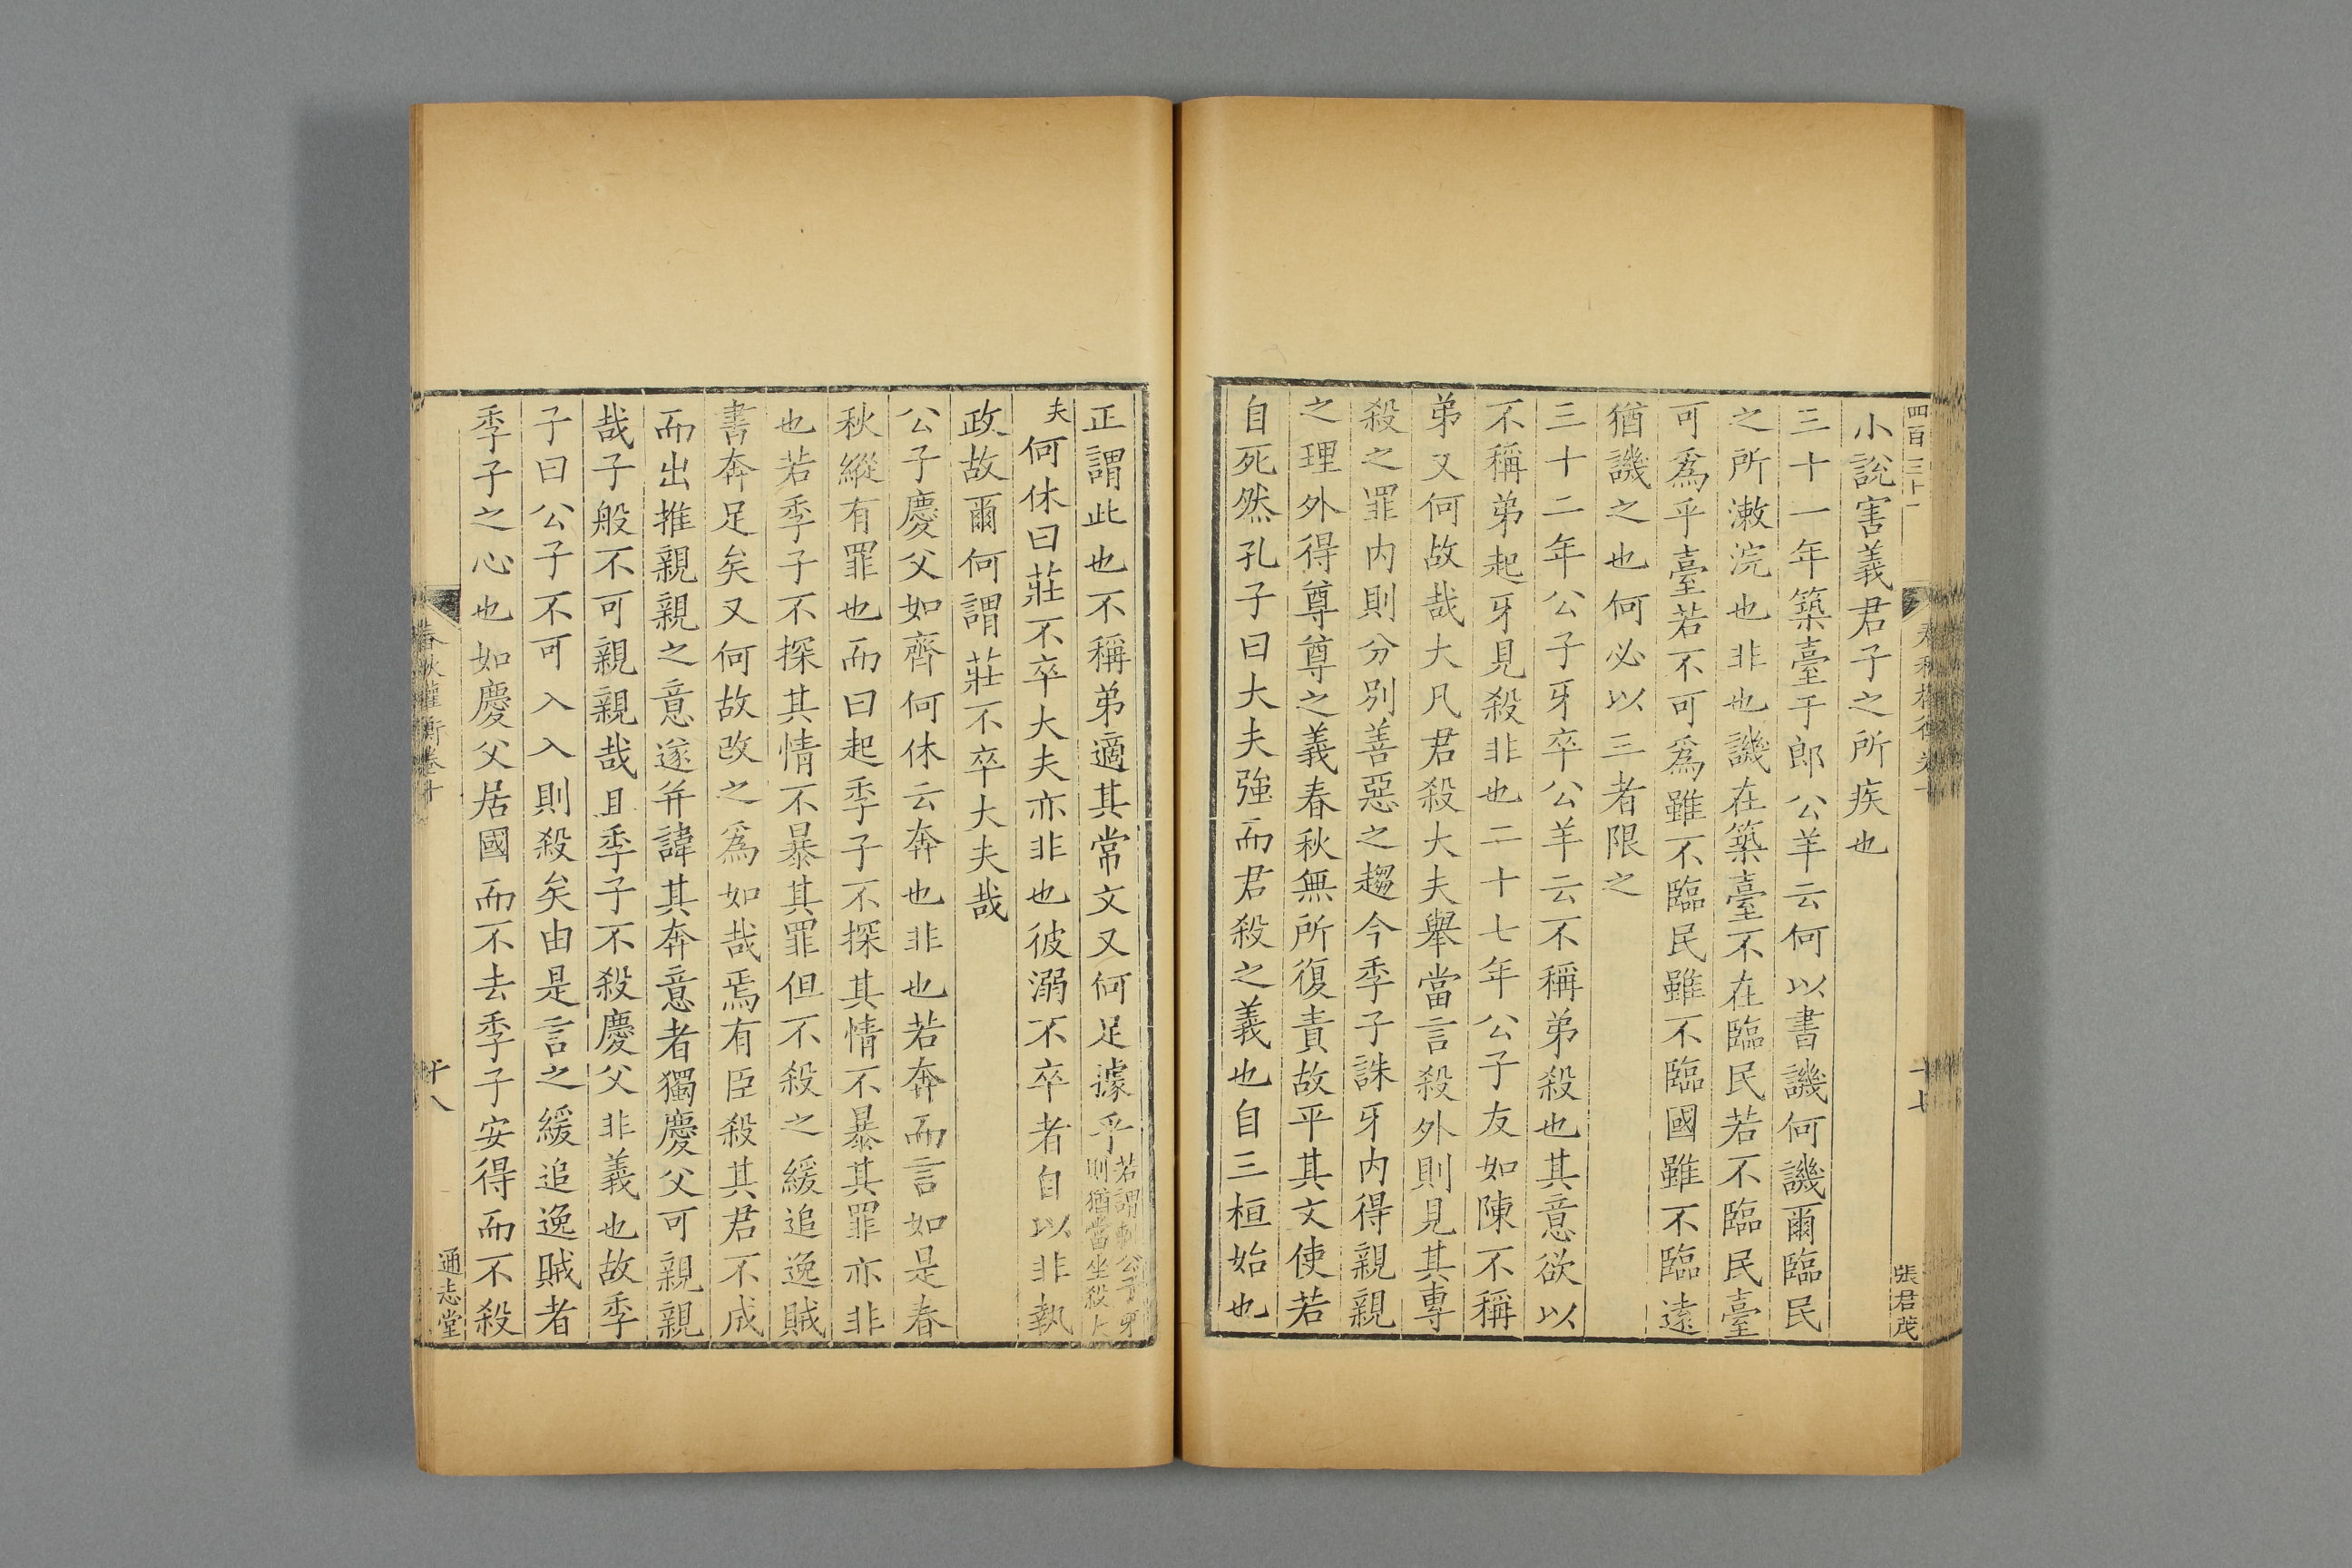 四百三十一
張君茂
小說害義君子之所疾也
三十一年築臺于郎公羊云何以書譏何譏爾臨民
之所漱浣也非也譏在築臺不在臨民若不臨民臺
可爲乎臺若不可爲雖不臨民雖不臨國雖不臨遠
猶譏之也何必以三者限之
三十二年公子牙卒公羊云不稱弟殺也其意欲以
不稱弟起牙見殺非也二十七年公子友如陳不稱
弟又何故哉大凡君殺大夫舉當言殺外則見其專
殺之罪内則分別善惡之趨今季子誅牙内得親親
之理外得尊尊之義春秋無所復責故平其文使若
自死然孔子曰大夫強而君殺之義也自三桓始也
正謂此也不稱弟適其常文又何足據乎若謂公子牙
則猶當坐殺大
夫何休曰莊不卒大夫亦非也彼溺不卒者自以非執
政故爾何謂莊不卒大夫哉
公子慶父如齊何休云奔也非也若奔而言如是春
秋縱有罪也而曰起季子不探其情不暴其罪亦非
也若季子不探其情不暴其罪但不殺之緩追逸賊
書奔足矣又何故改之爲如哉焉有臣殺其君不成
而出推親親之意遂并諱其奔意者獨慶父可親親
哉子般不可親親哉且季子不殺慶父非義也故季
子曰公子不可入入則殺矣由是言之緩追逸賊者
季子之心也如慶父居國而不去季子安得而不殺
春秋權衡卷十
十八
通志堂